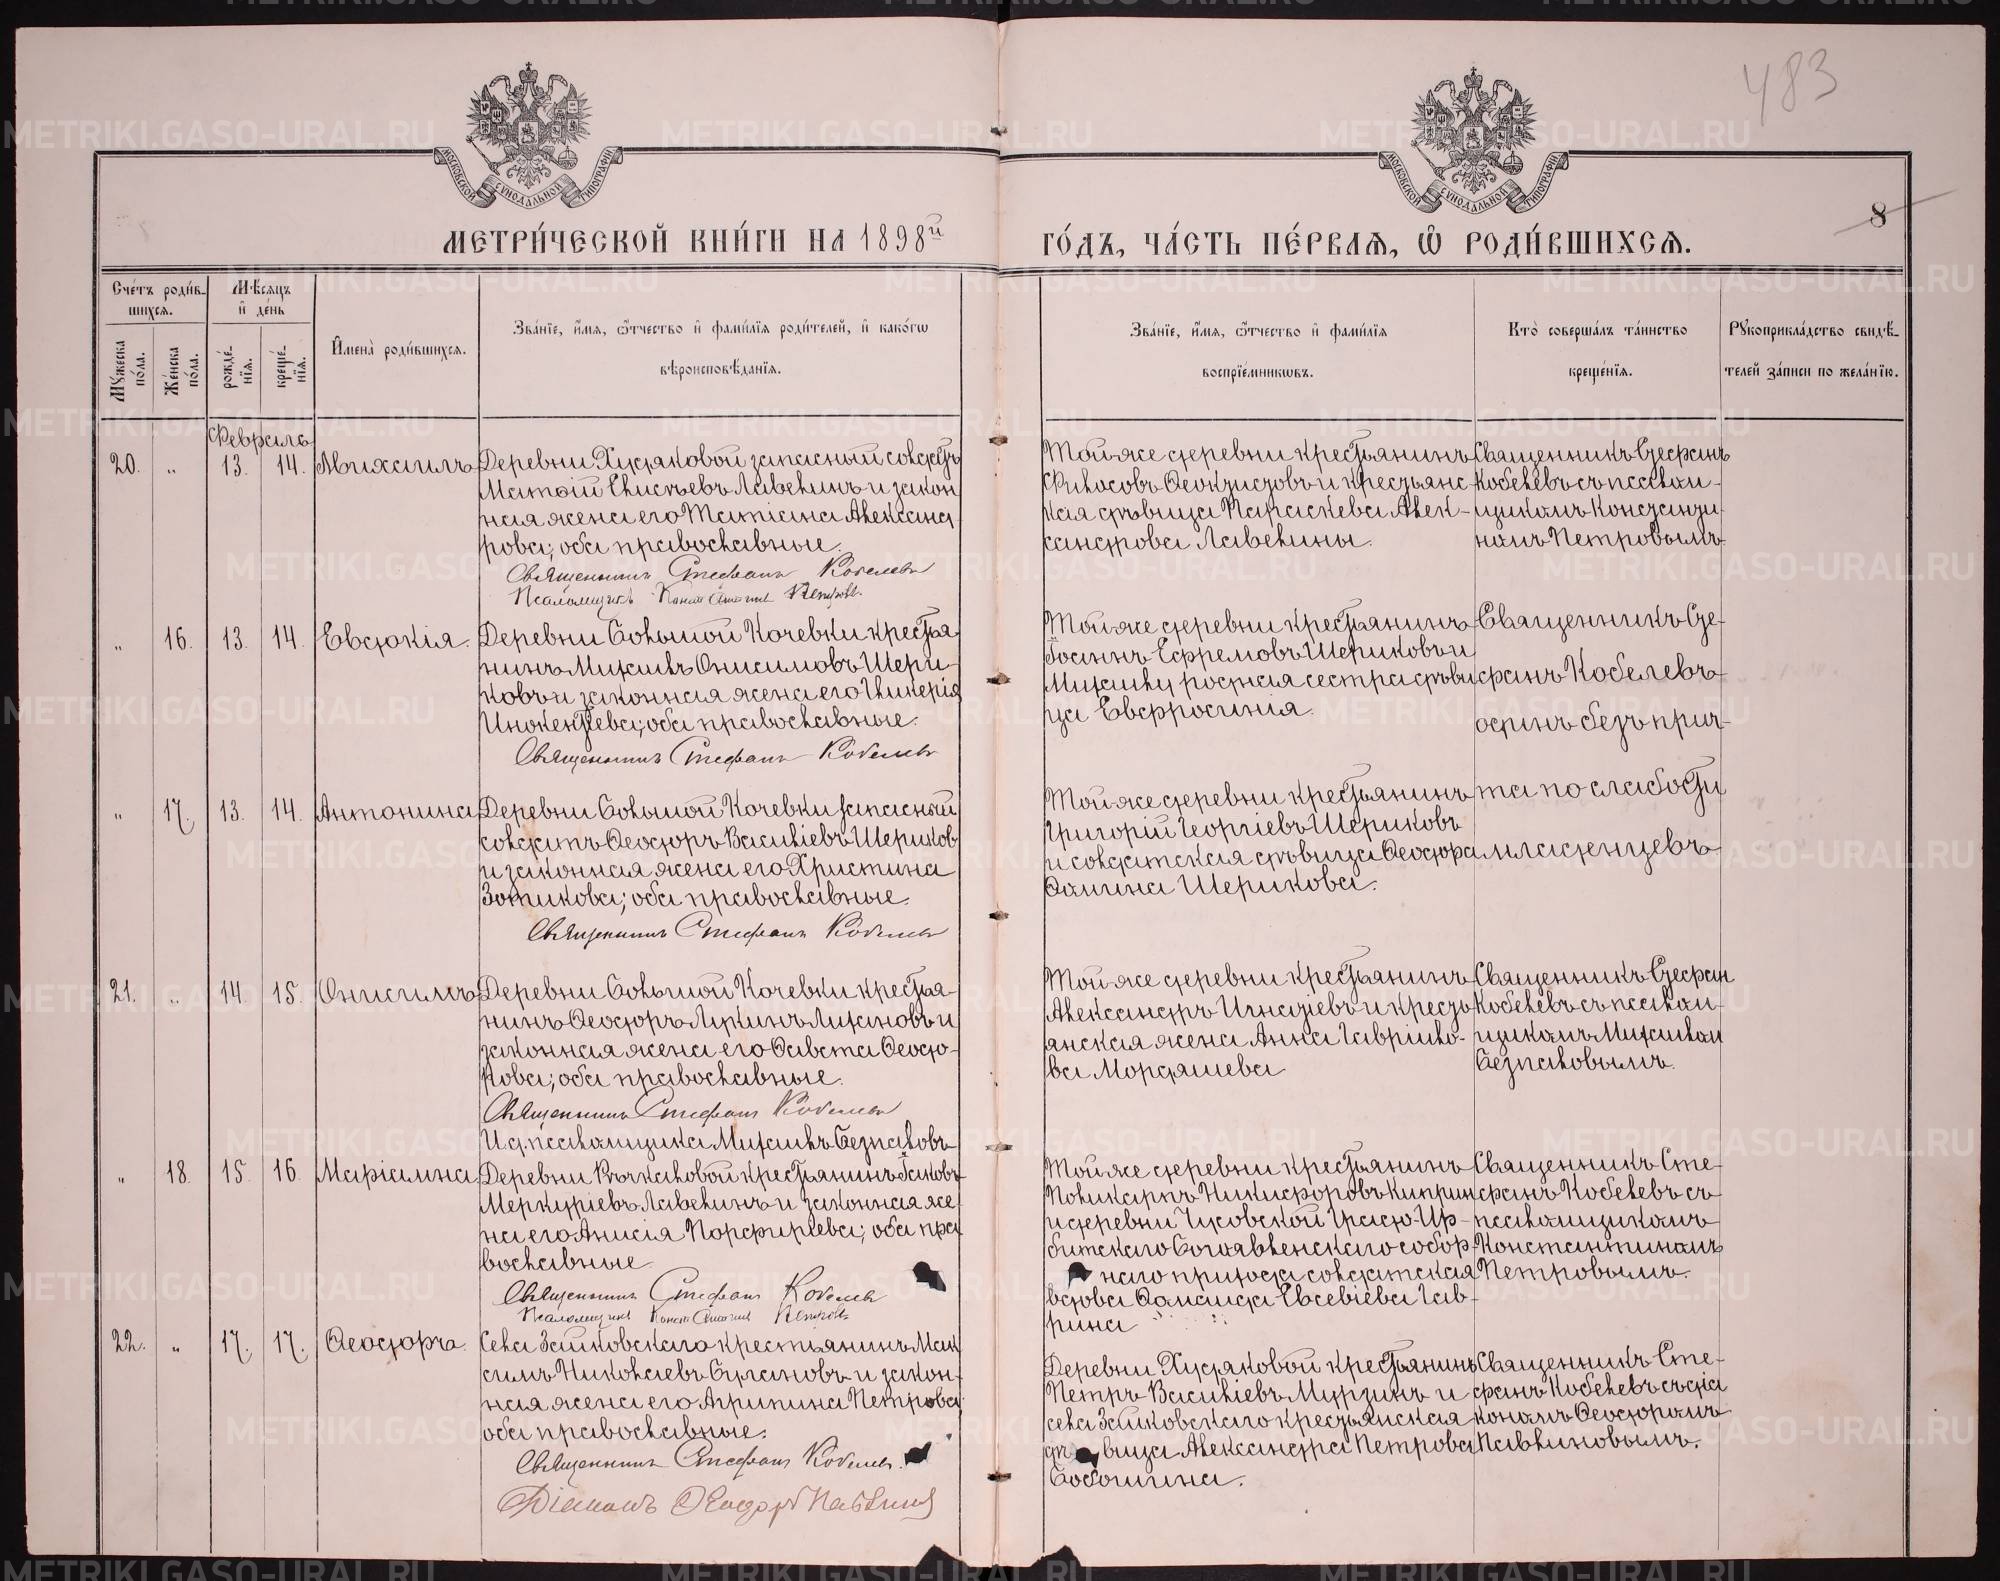 483
МОСКОВСКОЙ СѴНОДАЛЬНОЙ ТИПОГРАФІИ
МОСКОВСКОЙ СѴНОДАЛЬНОЙ ТИПОГРАФІИ
8
МЕТРИ́ЧЕСКОЙ КНИ́ГИ НА 1898й
ГО́ДЪ, ЧА́СТЬ ПЕ́РВАѦ, Ѡ҆ РОДИ́ВШИХСѦ.
Сче́тъ роди́в-
шихсѧ.
Мѣ́сѧцъ
и҆ де́нь
Мꙋ́жеска по́ла.
Же́нска по́ла.
рожде́-
нїѧ.
креще́-
нїѧ.
И҆мена̀ роди́вшихсѧ.
Зва́нїе, и҆́мѧ, ѻ҆́тчество и҆ фами́лїѧ роди́телей, и҆ како́гѡ
вѣроисповѣ́данїѧ.
Зва́нїе, и҆́мѧ, ѻ҆́тчество и҆ фами́лїѧ
воспрїе́мникѡвъ.
Кто̀ соверша́лъ та́инство
креще́нїѧ.
Рꙋкоприкла́дство свидѣ́-
телей за́писи по жела́нїю.
Февраль
20. " 13. 14. Михаилъ
Деревни Худяковой запасный солдатъ
Матѳій Елисѣевъ Лавелинъ и закон
ная жена его Татіана Александ
рова; оба православные.
Священникъ Стефанъ Кобелевъ
Псаломщикъ Константинъ Петровъ.
Той же деревни крестьянинъ
Филосовъ Ѳеоктистовъ и крестьянс
кая дѣвица Параскева Алек-
сандрова Лавелины.
Священникъ Стефанъ
Кобелевъ съ псалом-
щикомъ Константи-
номъ Петровымъ
" 16. 13. 14. Евдокія.
Деревни Большой Кочевки крестья-
нинъ Михаилъ Онисимовъ Шери-
ковъ и законная жена его Гликерія
Инокентіева; оба православные.
Священникъ Стефанъ Кобелевъ
Той же деревни крестьянинъ
Іоаннъ Ефремовъ Шериковъ и
Михаилу родная сестра дѣви
ца Евфросинія.
Священникъ Сте-
фанъ Кобелевъ
одинъ безъ прич-
" 17. 13. 14. Антонина
Деревни Большой Кочевки запасный
солдатъ Ѳеодоръ Василіевъ Шериков
и законная жена его Христина
Зотикова; оба православные.
Священникъ Стефанъ Кобелевъ
Той же деревни крестьянинъ
Григорій Георгіевъ Шериковъ
и солдатская дѣвица Ѳеодора
Ѳомина Шерикова.
та по слабости
младенцевъ
21. " 14. 15. Онисимъ
Деревни Большой Кочевки крестья-
нинъ Ѳеодоръ Лукинъ Лихановъ и
законная жена его Ѳавста Ѳеодо-
това; оба православные.
Священникъ Стефанъ Кобелевъ
И.д. псаломщика Михаилъ Безпаловъ
Той же деревни крестьянинъ
Александръ Игнатіевъ и кресть
янская жена Анна Гавріило-
ва Мордяшева
Священникъ Стефан
Кобелевъ съ псалом-
щикомъ Михаилом
Безпаловымъ.
" 18. 15. 16. Маріамна
Меркуріевъ Лавелинъ и законная же
на его Анисія Порфиріева; оба пра
вославные
Священникъ Стефанъ Кобелевъ
Псаломщикъ Константинъ Петровъ
Той же деревни крестьянинъ
Поликарпъ Никифоровъ Киприн
битскаго Богоявленскаго собор-
наго прихода солдатская
вдова Домнида Евсевіева Гав-
рина
Священникъ Сте-
фанъ Кобелевъ съ
псаломщикомъ
Константиномъ
Петровымъ.
22. " 17. 17. Ѳеодоръ.
Села Зайковскаго крестьянинъ Мак
симъ Николаевъ Булановъ и закон-
ная жена его Агрипина Петрова;
оба православные.
Священникъ Стефанъ Кобелевъ.
Діаконъ Ѳеодоръ Павлиновъ
Деревни Худяковой крестьянинъ
Петръ Василіевъ Мурзинъ и
села Зайковскаго крестьянская
дѣвица Александра Петрова
Боболина.
Священникъ Сте-
фанъ Кобелевъ съ діа
кономъ Ѳеодоромъ
Павлиновымъ.
METRIKI.GASO-URAL.RU